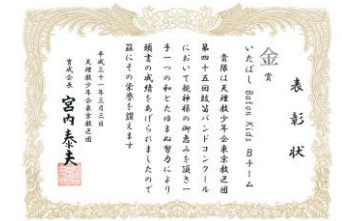 表彰状
金賞
いたばし Baton Kids Bチーム
貴隊は天理教少年会東京教区団
第四十五回鼓笛バンドコンクール
において親神様の御恵みを頂き一
手一つの和とたゆまぬ努力により
頭書の成績をあげられましたので
茲にその栄誉を讃えます
平成三十一年三月三日
天理教少年会東京教区団
育成会長 宮内泰夫